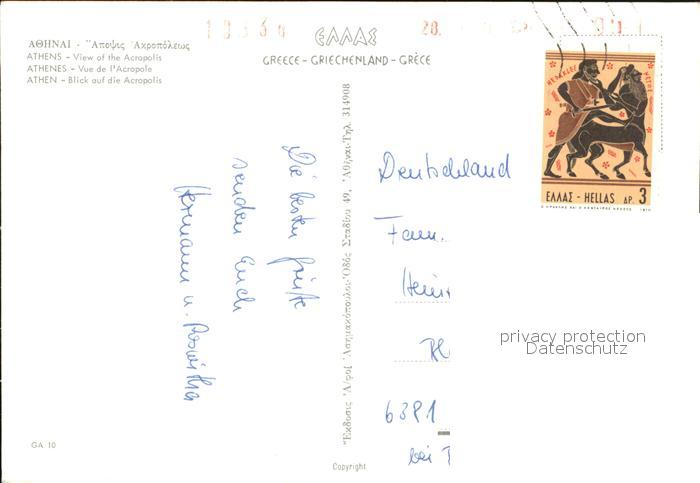 ΑΘΗΝΑΙ - Ἄποψις Ἀκροπόλεως
ATHENS - View of the Acropolis
ATHENES - Vue de l'Acropole
ATHEN - Blick auf die Acropolis
ΕΛΛΑΣ
GREECE - GRIECHENLAND - GRÈCE
ΕΛΛΑΣ - HELLAS ΔΡ. 3
Die besten Grüße
senden Euch
Hermann u. Roswitha
Ἔκδοσις Ἀ/φοὶ Ἀσημακόπουλοι Ὁδὸς Σταδίου 49, Ἀθῆναι-Τηλ. 314908
Deutschland
Fam.
Hein
6381
bei
privacy protection
Datenschutz
GA 10
Copyright